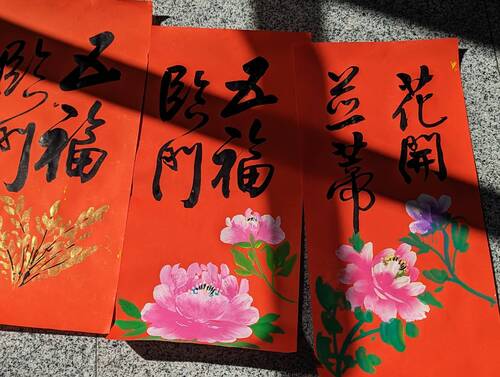 花開
並蒂
五福
臨門
五福
臨門